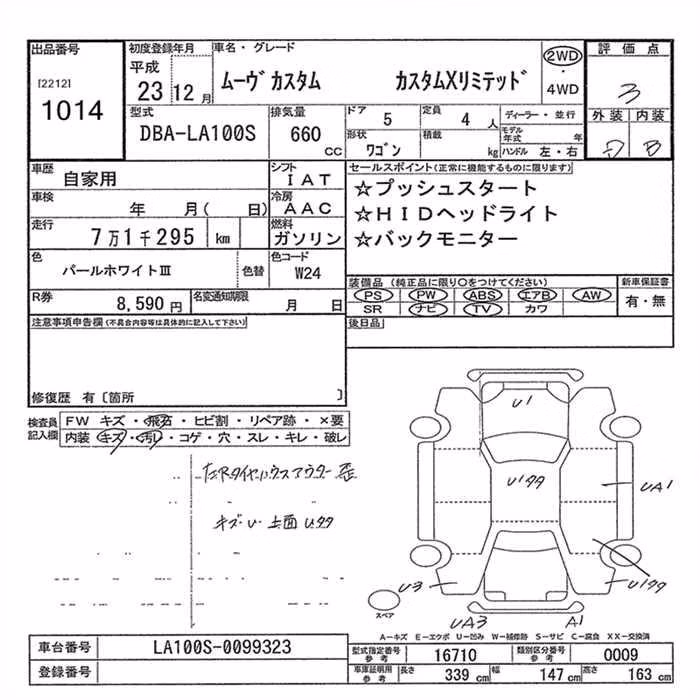 出品番号 初度登録年月 車名・グレード 評価点
[2212] 平成 ムーヴカスタム カスタムXリミテッド 2WD ・ 4WD 3
1014 23 12月 外装 内装
型式 排気量 ドア 定員 ディーラー・並行 D B
DBA-LA100S 660 CC 5 4人 モデル年式 年
形状 積載
ワゴン kg ハンドル 左・右
車歴 自家用 シフト IAT セールスポイント(正常に機能するものに限ります)
☆プッシュスタート
車検 年 月( 日) 冷房 AAC ☆HIDヘッドライト
走行 7万1千295 km 燃料 ガソリン ☆バックモニター
色 パールホワイトⅢ 色替 色コード W24
装備品(純正品に限り○をつけてください) 新車保証書
R券 8,590円 名変通知期限 月 日 PS PW ABS エアB AW 有・無
SR ナビ TV カワ
注意事項申告欄(不具合内容等は具体的に記入して下さい) 後日品
修復歴 有〔箇所 〕
検査員記入欄 FW キズ・飛石・ヒビ割・リペア跡・×要
内装 キズ・汚レ・コゲ・穴・スレ・キレ・破レ
U1
U1タタ
UA1
U3
U1タタ
UA3
A1
スペア
A-キズ E-エクボ U-凹み W-補修跡 S-サビ C-腐食 XX-交換済
車台番号 LA100S-0099323 型式指定番号 参考 16710 類別区分番号 参考 0009
登録番号 車庫証明用 参考 長さ 339 cm 幅 147 cm 高さ 163 cm